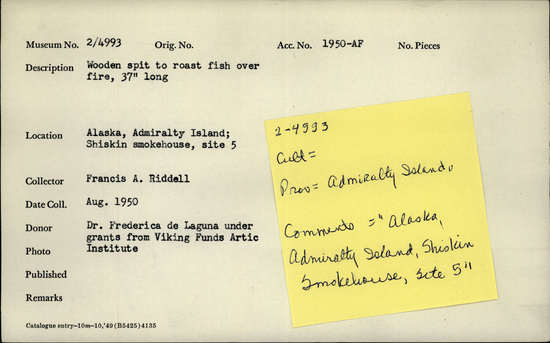 Museum No. 2/4993 Orig. No. Acc. No. 1950-AF No. Pieces
Description Wooden spit to roast fish over
fire, 37" long
Location Alaska, Admiralty Island;
Shiskin smokehouse, site 5
Collector Francis A. Riddell
Date Coll. Aug. 1950
Donor Dr. Frederica de Laguna under
grants from Viking Funds Artic
Photo Institute
Published
Remarks
Catalogue entry-10m-10,'49 (B5425) 4135
2-4993
Cult=
Prov= Admiralty Island,
Comments = "Alaska,
Admiralty Island, Shiskin
Smokehouse, site 5"